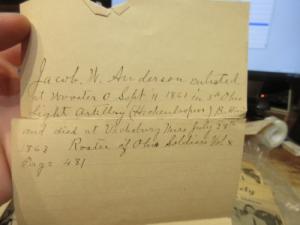 Jacob W. Anderson enlisted
at Wooster O Sept 11 1861 in 5th Ohio
Light Artillery (Hockenhouper) B.
and died at Vicksburg Miss July 28th
1863 Roster of Ohio Soldiers Vol x
Page 431